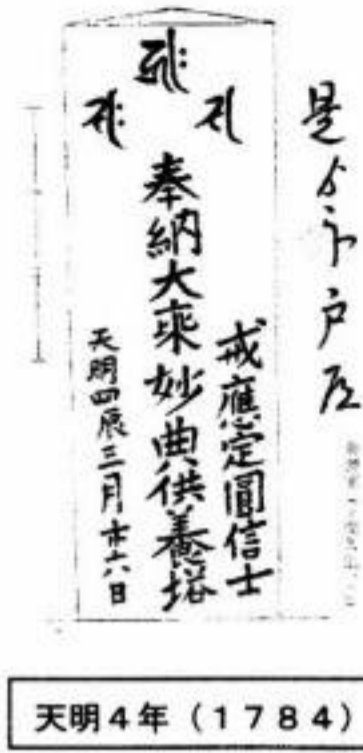 是より戸道
戒應定圓信士
奉納大乘妙典供養塔
天明四辰三月廿六日
天明4年（1784）